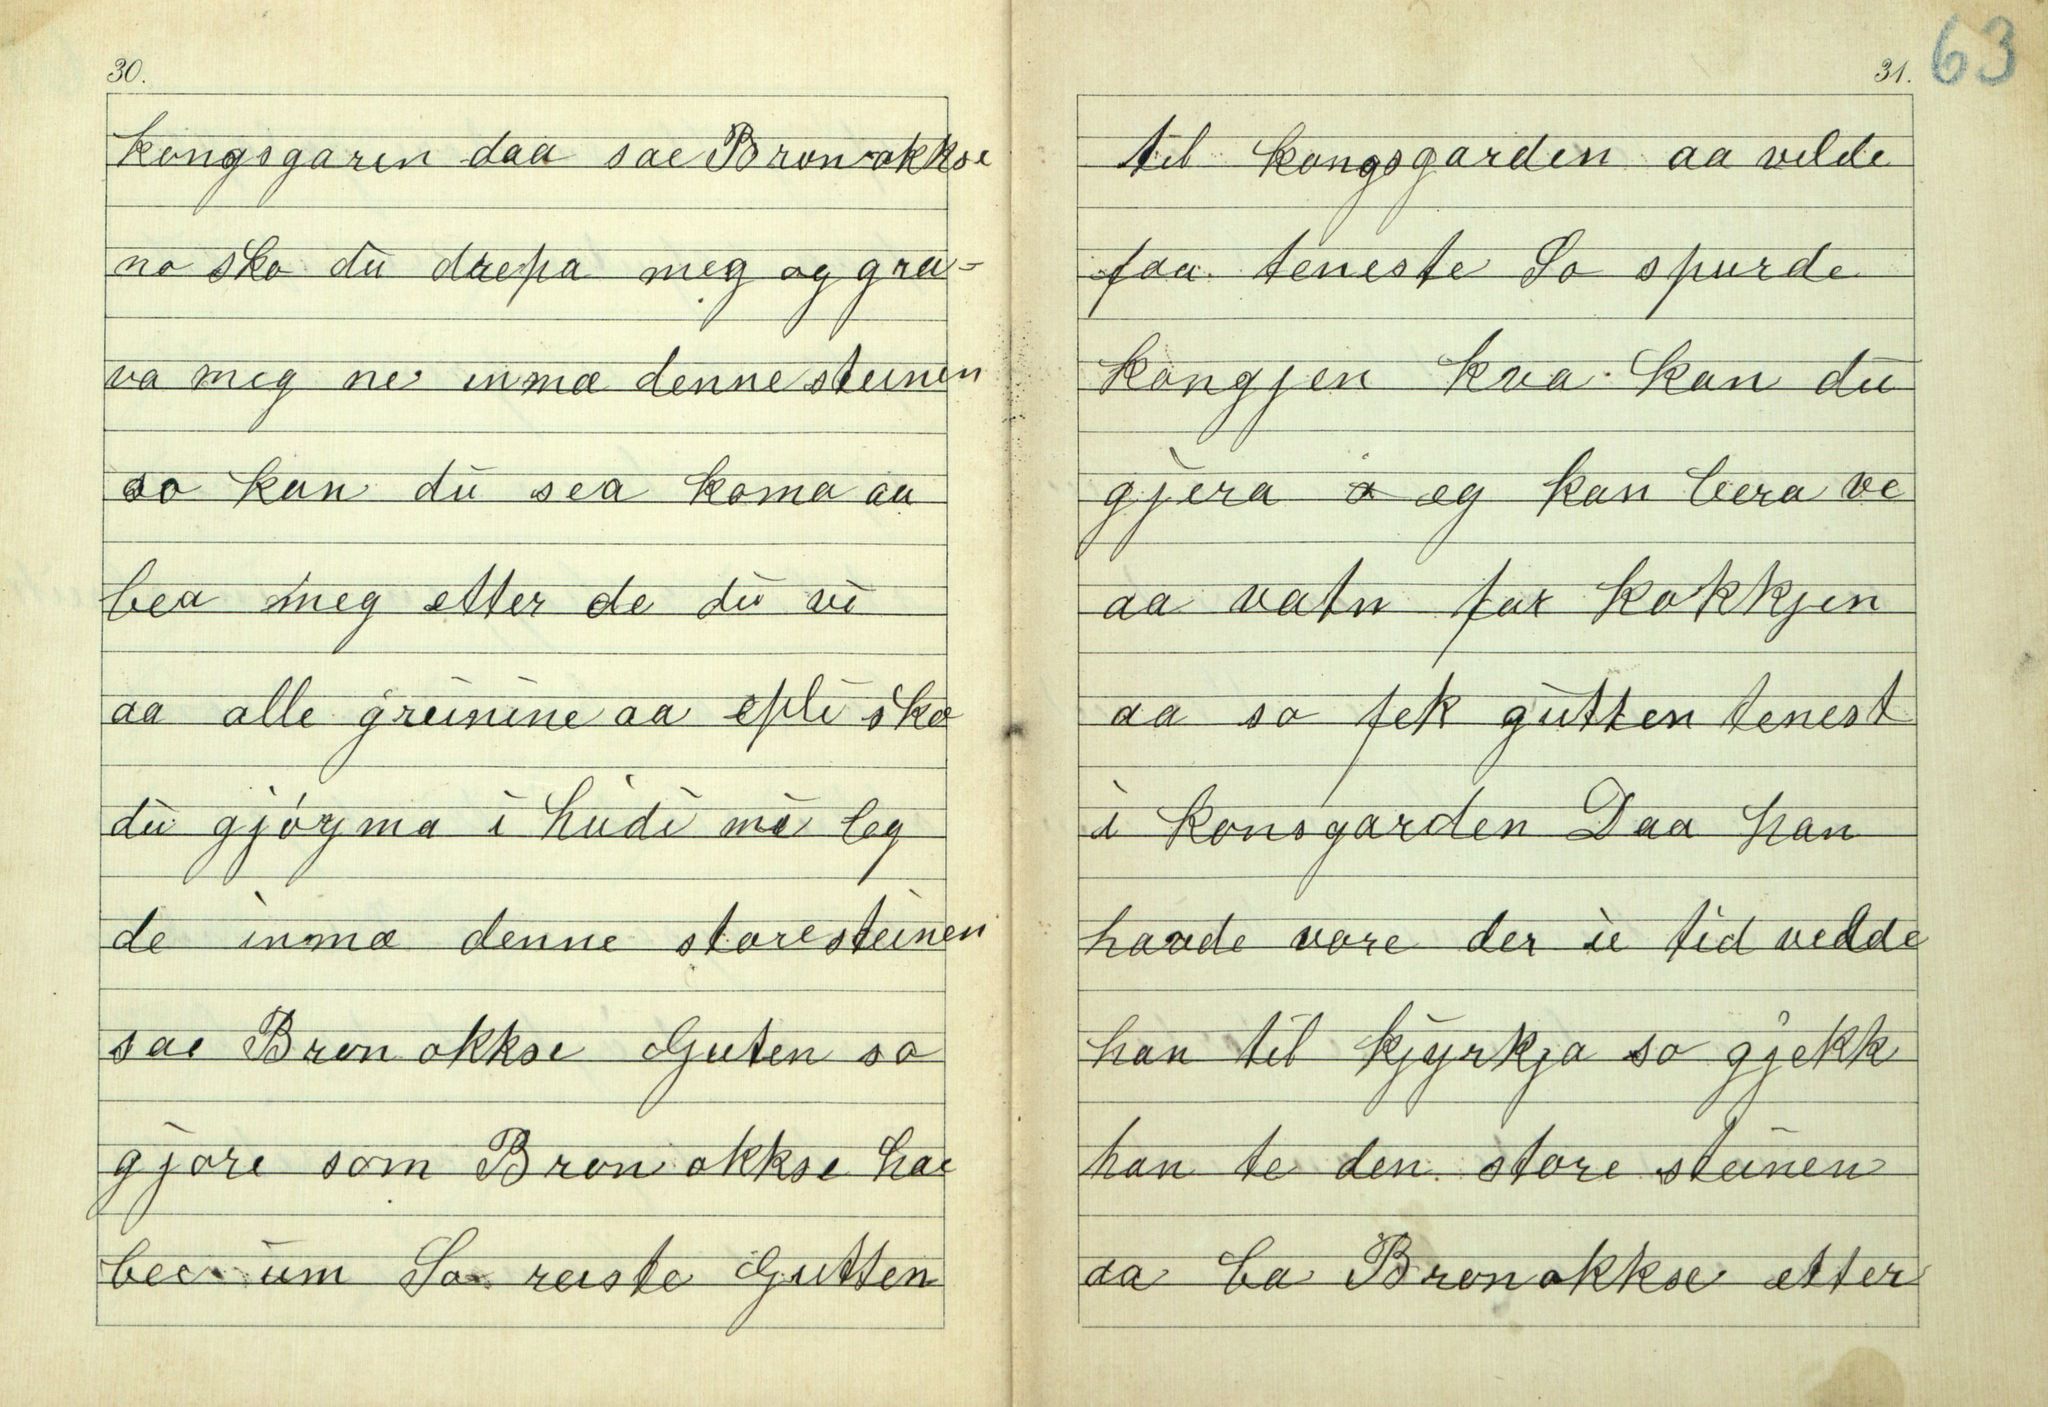 30.
kongsgaren daa sae Bronokkse
no sko du drepa meg og gra-
va meg ne inmæ denne steinen
so kan du sea koma aa
bea meg etter de du vi
aa alle greinine aa epli sko
du gjøyma i hudi mi leg
de inmæ denne storesteinen
sae Bronokkse Guten so
gjore som Bronokkse hae
bee um So reiste Gutten
31. 63
til kongsgarden aa vilde
faa teneste So spurde
kongjen kva kan du
gjera o æg kan bera ve
aa vatn for kokkjen
aa so fek gutten tenest
i konsgarden Daa han
havde vore der ie tid vedde
han til kjyrkja so gjekk
han te den store steinen
aa ba Bronokkse etter